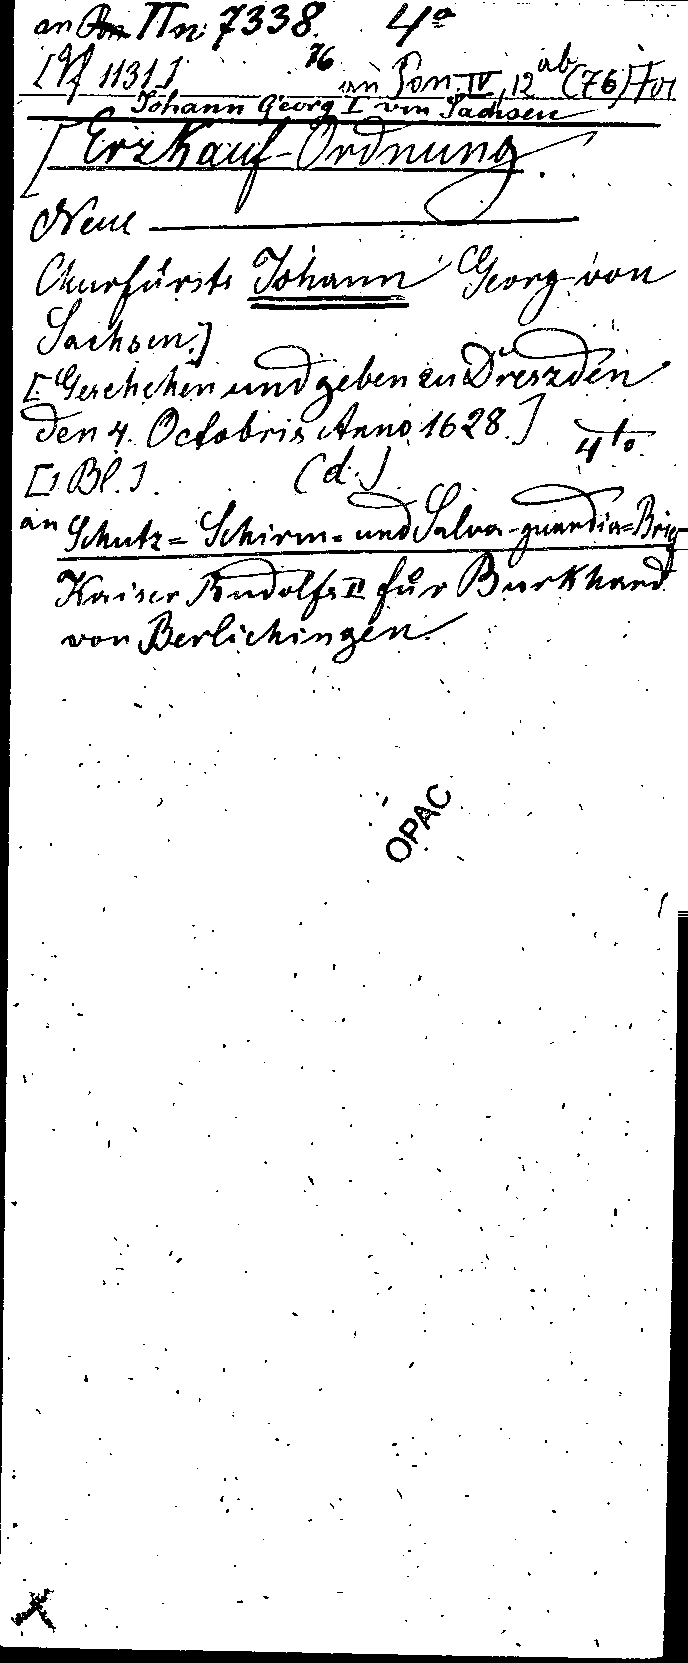 an Pon IIn 7338. 4°
[Yf 1131] 76 an Pon. IV, 12 ab (76) Fol
Johann Georg I von Sachsen
[Erzkauf-Ordnung.
Neue
Churfürsts Johann Georg von
Sachsen.]
[Geschehen und geben zu Dreszden
den 4. Octobris Anno 1628.] 4to.
[1 Bl.]. (d.)
an Schutz= Schirm= und Salva-guardia=Brief
Kaiser Rudolfs II für Burkhard
von Berlichingen.
OPAC